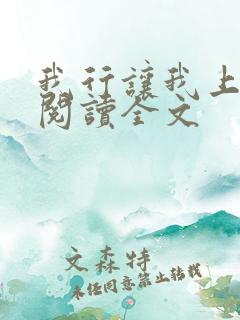 我行讓我上
閱讀全文
文森特
未经同意禁止转载